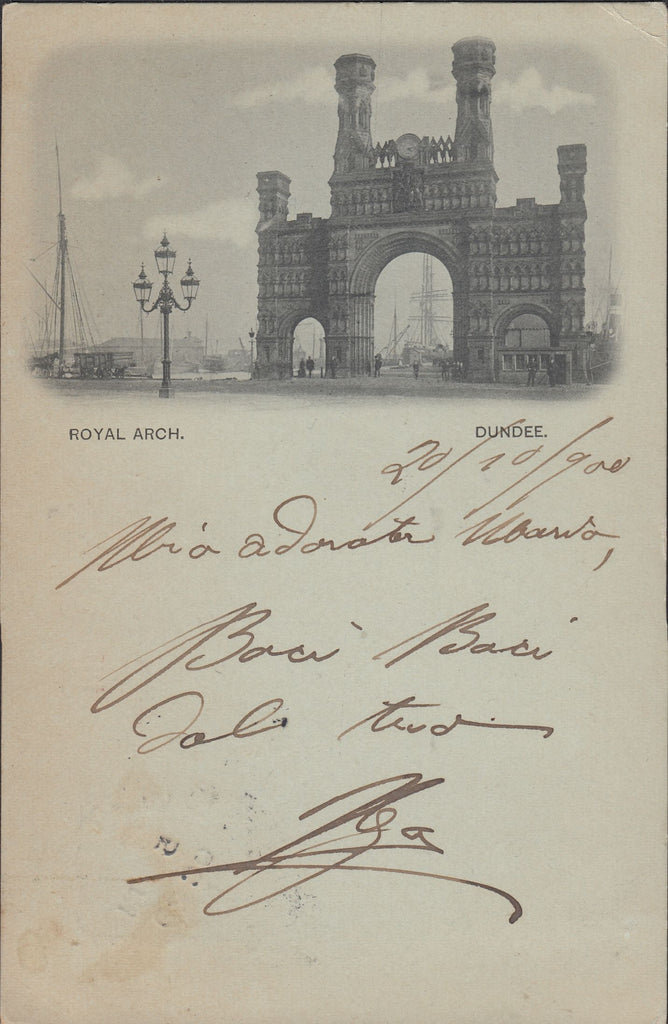 ROYAL ARCH. DUNDEE.
20/10/900
Mia adorata Maria,
Baci Baci
dal tuo